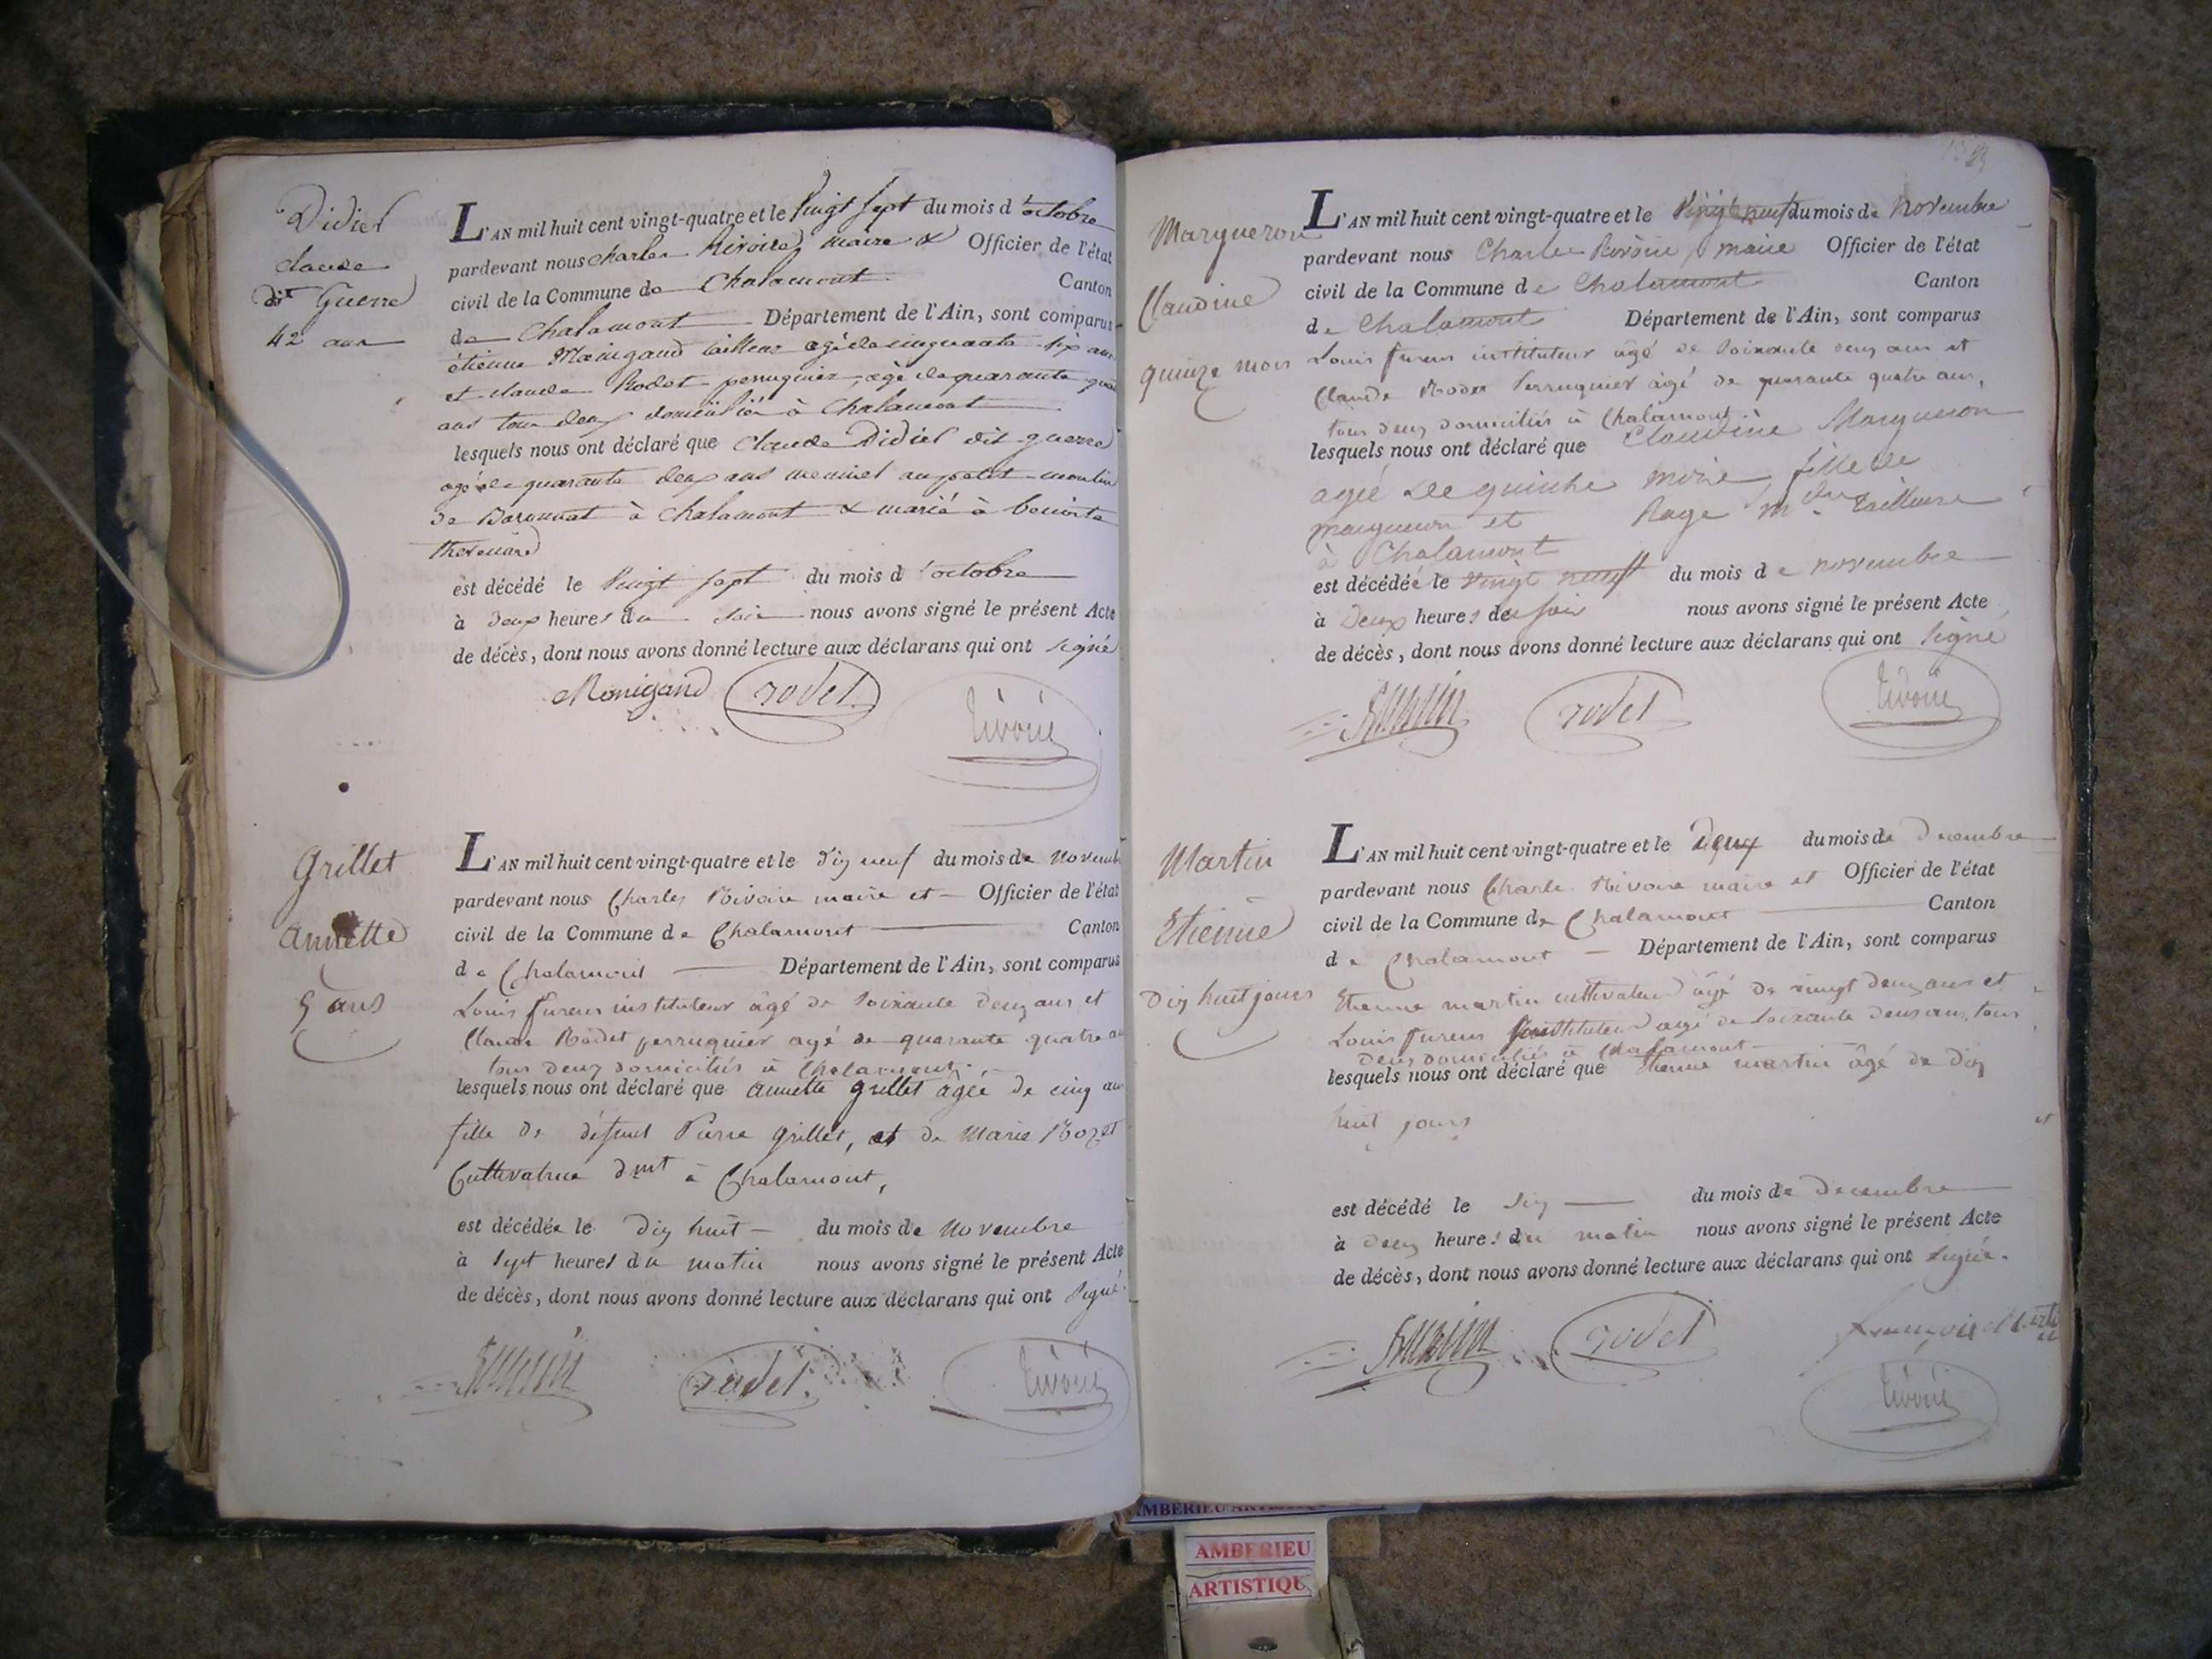 Didier
claude
dit Guerre
42 ans
L'AN mil huit cent vingt-quatre et le Vingt sept du mois d'octobre
pardevant nous charles Rivoire, maire & Officier de l'état
civil de la Commune de Chalamont Canton
de Chalamont Département de l'Ain, sont comparus
étienne Monigand tailleur agé de cinquante six ans
et claude Rodet perruquier, agé de quarante quatre
ans tous deux domiciliés à Chalamont
lesquels nous ont déclaré que Claude Didier dit guerre
agé de quarante deux ans meunier au petit moulin
de Baronnat à Chalamont & marié à benoite
thevenard
est décédé le Vingt sept du mois d'octobre
à deux heures du soir nous avons signé le présent Acte
de décès, dont nous avons donné lecture aux déclarans qui ont signé
Monigand rodet rivoire
Grillet
annette
5 ans
L'AN mil huit cent vingt-quatre et le dix neuf du mois de Novemb
pardevant nous Charles Rivoire maire et Officier de l'état
civil de la Commune de Chalamont Canton
de Chalamont Département de l'Ain, sont comparus
Louis fureur instituteur âgé de soixante deux ans et
Claude Rodet perruquier agé de quarante quatre an
tous deux domiciliés à Chalamont
lesquels nous ont déclaré que annette grillet âgée de cinq ans
fille de défunt Pierre grillet, et de Marie Bozet
Cultivatrice dmt à Chalamont,
est décédée le dix huit du mois de Novembre
à sept heures du matin nous avons signé le présent Acte
de décès, dont nous avons donné lecture aux déclarans qui ont signé
rodet rivoire
Margueron
Claudine
quinze mois
L'AN mil huit cent vingt-quatre et le Vingt neuf du mois de Novembre
pardevant nous Charles Rivoire, maire Officier de l'état
civil de la Commune de Chalamont Canton
de Chalamont Département de l'Ain, sont comparus
Louis fureur instituteur âgé de soixante deux ans et
Claude Rodet Perruquier âgé de quarante quatre ans,
tous deux domiciliés à Chalamont
lesquels nous ont déclaré que Claudine Margueron
agée de quinze mois fille de
margueron et Rage md tailleuse
à Chalamont
est décédée le vingt neuf du mois de novembre
à Deux heures du soir nous avons signé le présent Acte
de décès, dont nous avons donné lecture aux déclarans qui ont signé
rodet rivoire
Martin
Etienne
Dix huit jours
L'AN mil huit cent vingt-quatre et le Deux du mois de Decembre
pardevant nous Charles Rivoire maire et Officier de l'état
civil de la Commune de Chalamont Canton
de Chalamont Département de l'Ain, sont comparus
Etienne martin cultivateur âgé de vingt deux ans et
Louis fureur instituteur agé de soixante deux ans, tous
deux domiciliés à Chalamont
lesquels nous ont déclaré que Etienne martin âgé de dix
huit jours et
est décédé le du mois de Decembre
à deux heures du matin nous avons signé le présent Acte
de décès, dont nous avons donné lecture aux déclarans qui ont signé.
rodet françois Martin
rivoire
AMBERIEU ARTISTIQUE
AMBERIEU
ARTISTIQU